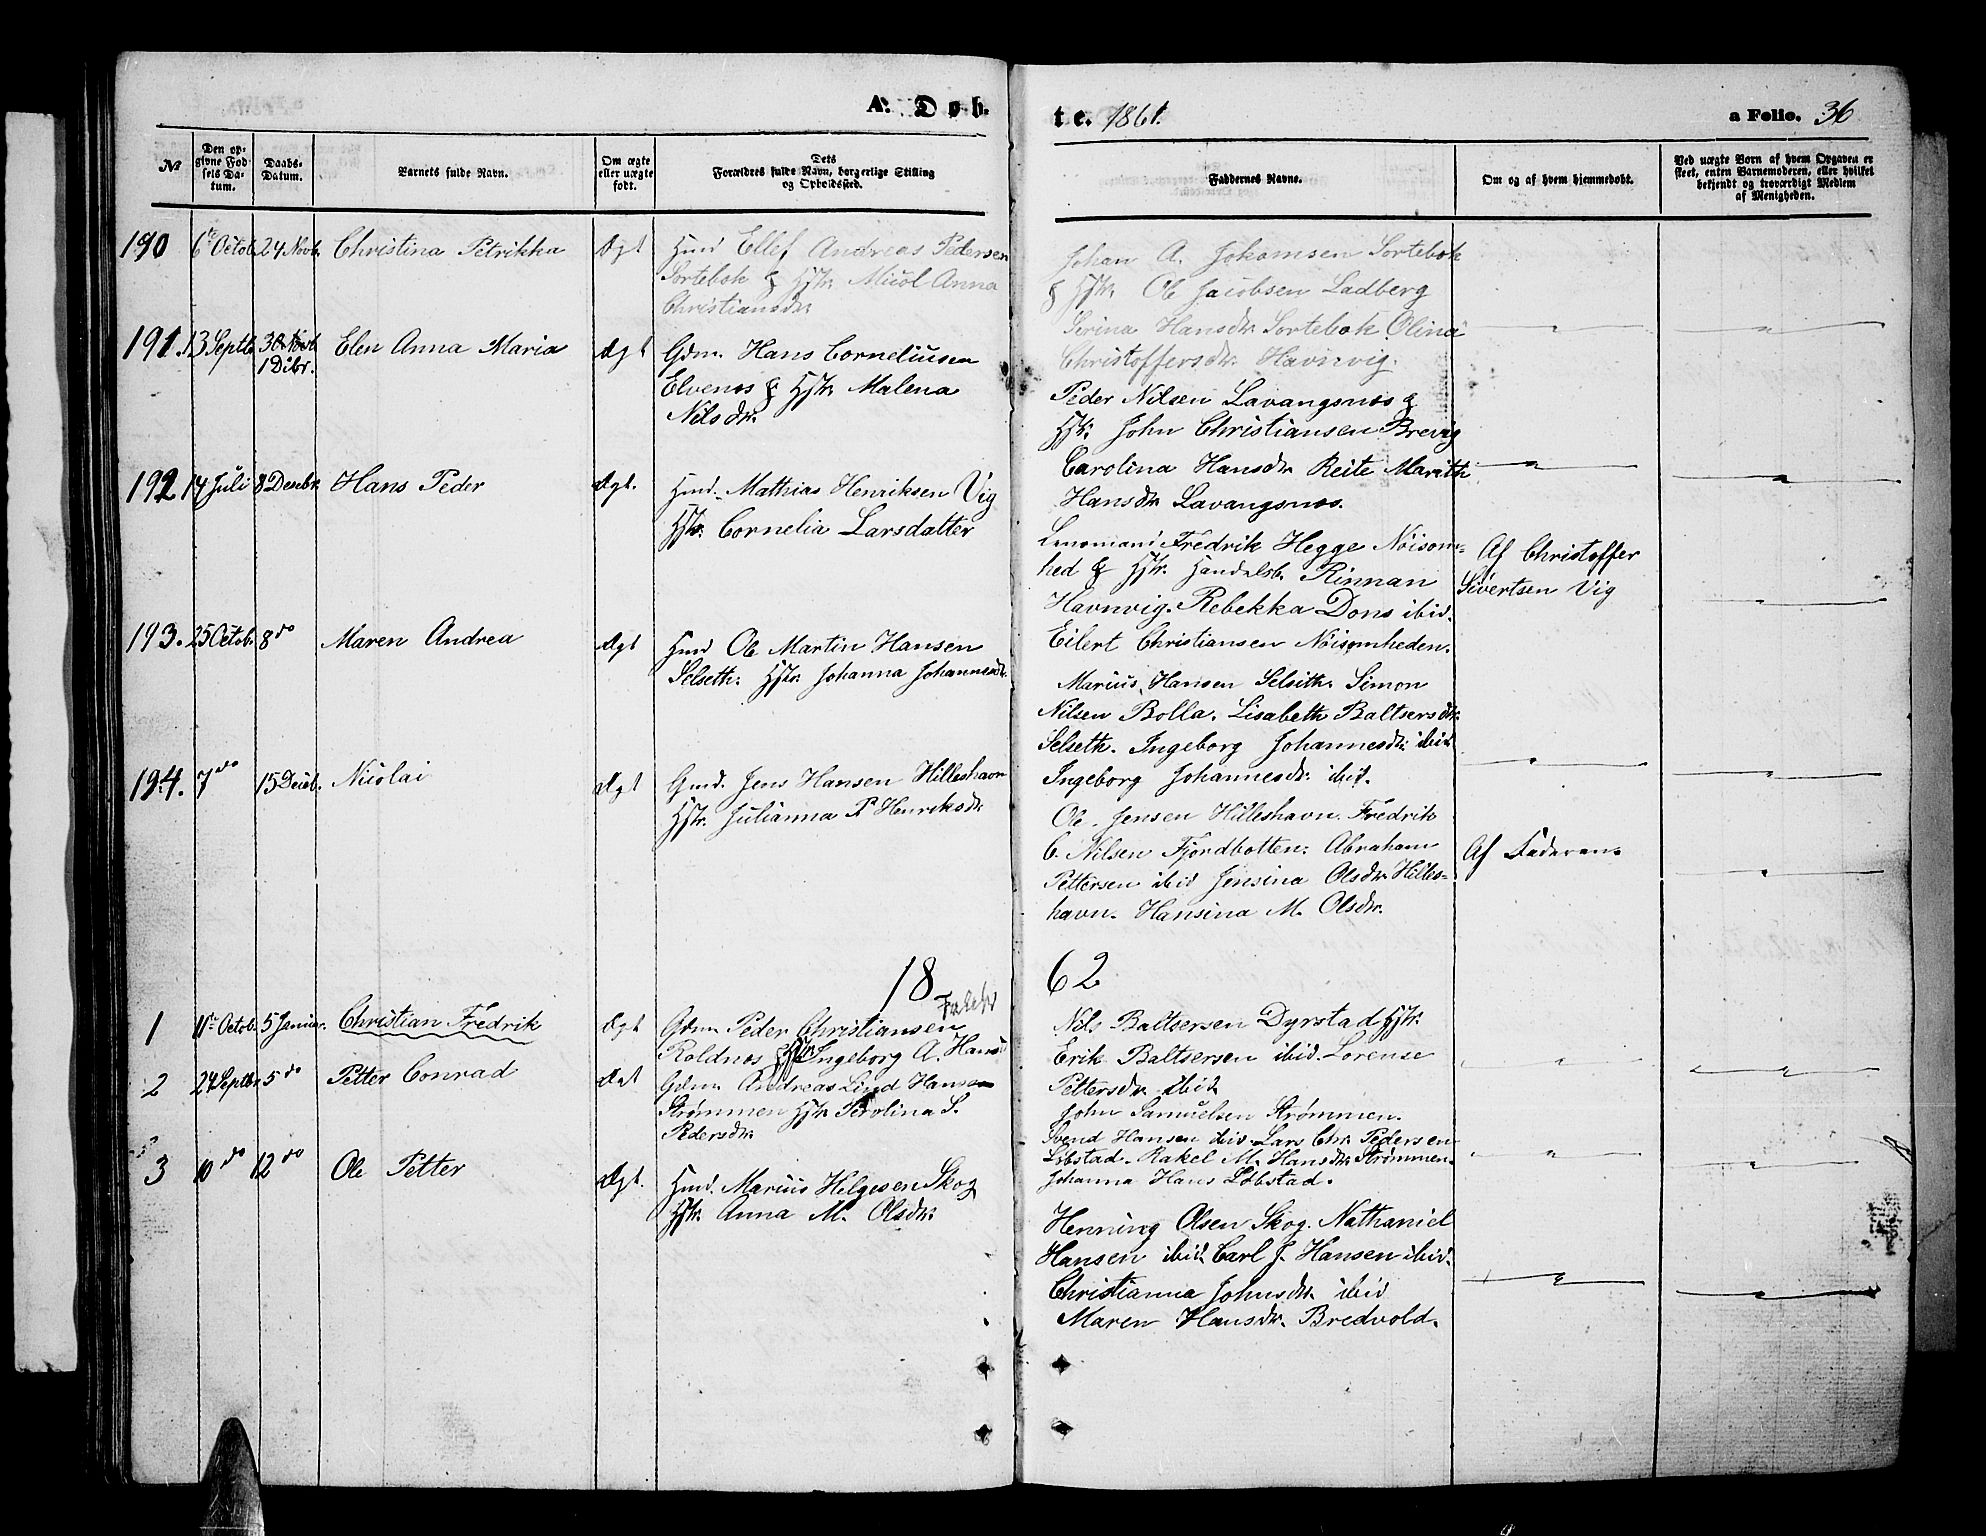 A. Døb
te. 1861.
a Folio. 36
№
Den op-
givne Fød-
sels Da-
tum.
Daabs-
Datum.
Barnets fulde Navn.
Om ægte
eller uægte
født.
Dets
Forældres fulde Navn, borgerlige Stilling
og Opholdssted.
Faddernes Navne.
Om og af hvem hjemmedøbt.
Ved uægte Børn af hvem Opgaven er
skeet, enten Barnemoderen, eller hvilket
bekjendt og troværdigt Medlem
af Menigheden.
190 6te Octob. 24 Novb. Christina Petrikka Ægt Hmd Ellef Andreas Pedersen
Sortebok & Hstr. Micol Anna
Christiansdr.
Johan A. Jokomsen Sortebok
& Hstr. Ole Jacobsen Ladberg
Serina Hansdr. Sortebok Olina
Christoffersdr. Havnvig.
191. 13 Septb. 30 Novb. Elen Anna Maria Ægt Gdm. Hans Corneliusen
1 Dcbr.
Elvenes & Hstr. Malena
Nilsdr.
Peder Nilsen Lavangsnes &
Hstr. John Christiansen Brevig
Carolina Hansdr. Reite Marith
Hansdr. Lavangsnes.
192 14 Juli 8 Decbr. Hans Peder Ægt. Hmd. Mathias Henriksen Vig
Hstr. Cornelia Larsdatter
Lensmand Fredrik Hegge Nöisom-
hed & Hstr. Handelsb. Rinnan
Havnvig. Rebekka Dons ibid.
Eilert Christiansen Nöisomheden.
Af Christoffer
Sivertsen Vig
193. 25 Octob. 8 do Maren Andrea Ægt Hmd Ole Martin Hansen
Selseth. Hstr. Johanna Johannesdr.
Marius Hansen Selseth. Simon
Nilsen Bolla. Lisabeth Baltsersdr.
Selseth. Ingeborg Johannesdr. ibid
Ingeborg Johannesdr. ibid.
194. 7 do 15 Decb. Nicolai Ægt Gmd. Jens Hansen Hilleshavn
Hstr. Julianna P. Henriksdr.
Ole Jensen Hilleshavn. Fredrik
C. Nilsen Fjordbotten. Abraham
Pettersen ibid Jensina Olsdr. Hilles-
havn. Hansina M. Olsdr.
Af Faderen.
18 62
1 11te Octob. 5 Januar. Christian Fredrik Ægt Gdm Peder Christiansen
Roldnes & Hstr. Ingeborg A. Hans
Nils Baltsersen Dyrstad Hstr.
Erik Baltsersen ibid. Lorense
Pettersdr. ibid
2 24 Septbr. 5 do Petter Conrad Ægt Gdm. Andreas Lind Hansen
Strømmen Hstr. Serolina S.
Pedersdr.
John Samuelsen Strømmen.
Svend Hansen ibid. Lars Chr. Pedersen
Löbstad. Rakel M. Hansdr. Strømmen.
Johanna Hans Löbstad.
3 10 do 12 do Ole Petter Ægt. Hmd. Marius Helgesen Skog
Hstr. Anna M. Olsdr.
Henning Olsen Skog. Nathaniel
Hansen ibid. Carl J. Hansen ibid.
Christianna Johnsdr. ibid
Maren Hansdr. Bredvold.